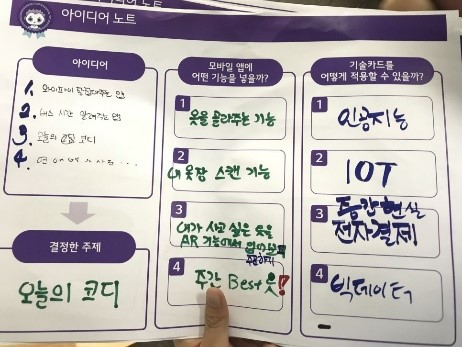 아이디어 노트
아이디어
1. 와이파이 찾아주는 앱
2. 버스 시간 알려주는 앱
3. 오늘의 코디
4.
결정한 주제
오늘의 코디
모바일 앱에
어떤 기능을 넣을까?
1 옷을 골라주는 기능
2 내 옷장 스캔 기능
3 내가 사고 싶은 옷을
AR 기능에서 입어보고
4 주간 Best 옷!
기술카드를
어떻게 적용할 수 있을까?
1 인공지능
2 IOT
3 증강현실
전자결제
4 빅데이터